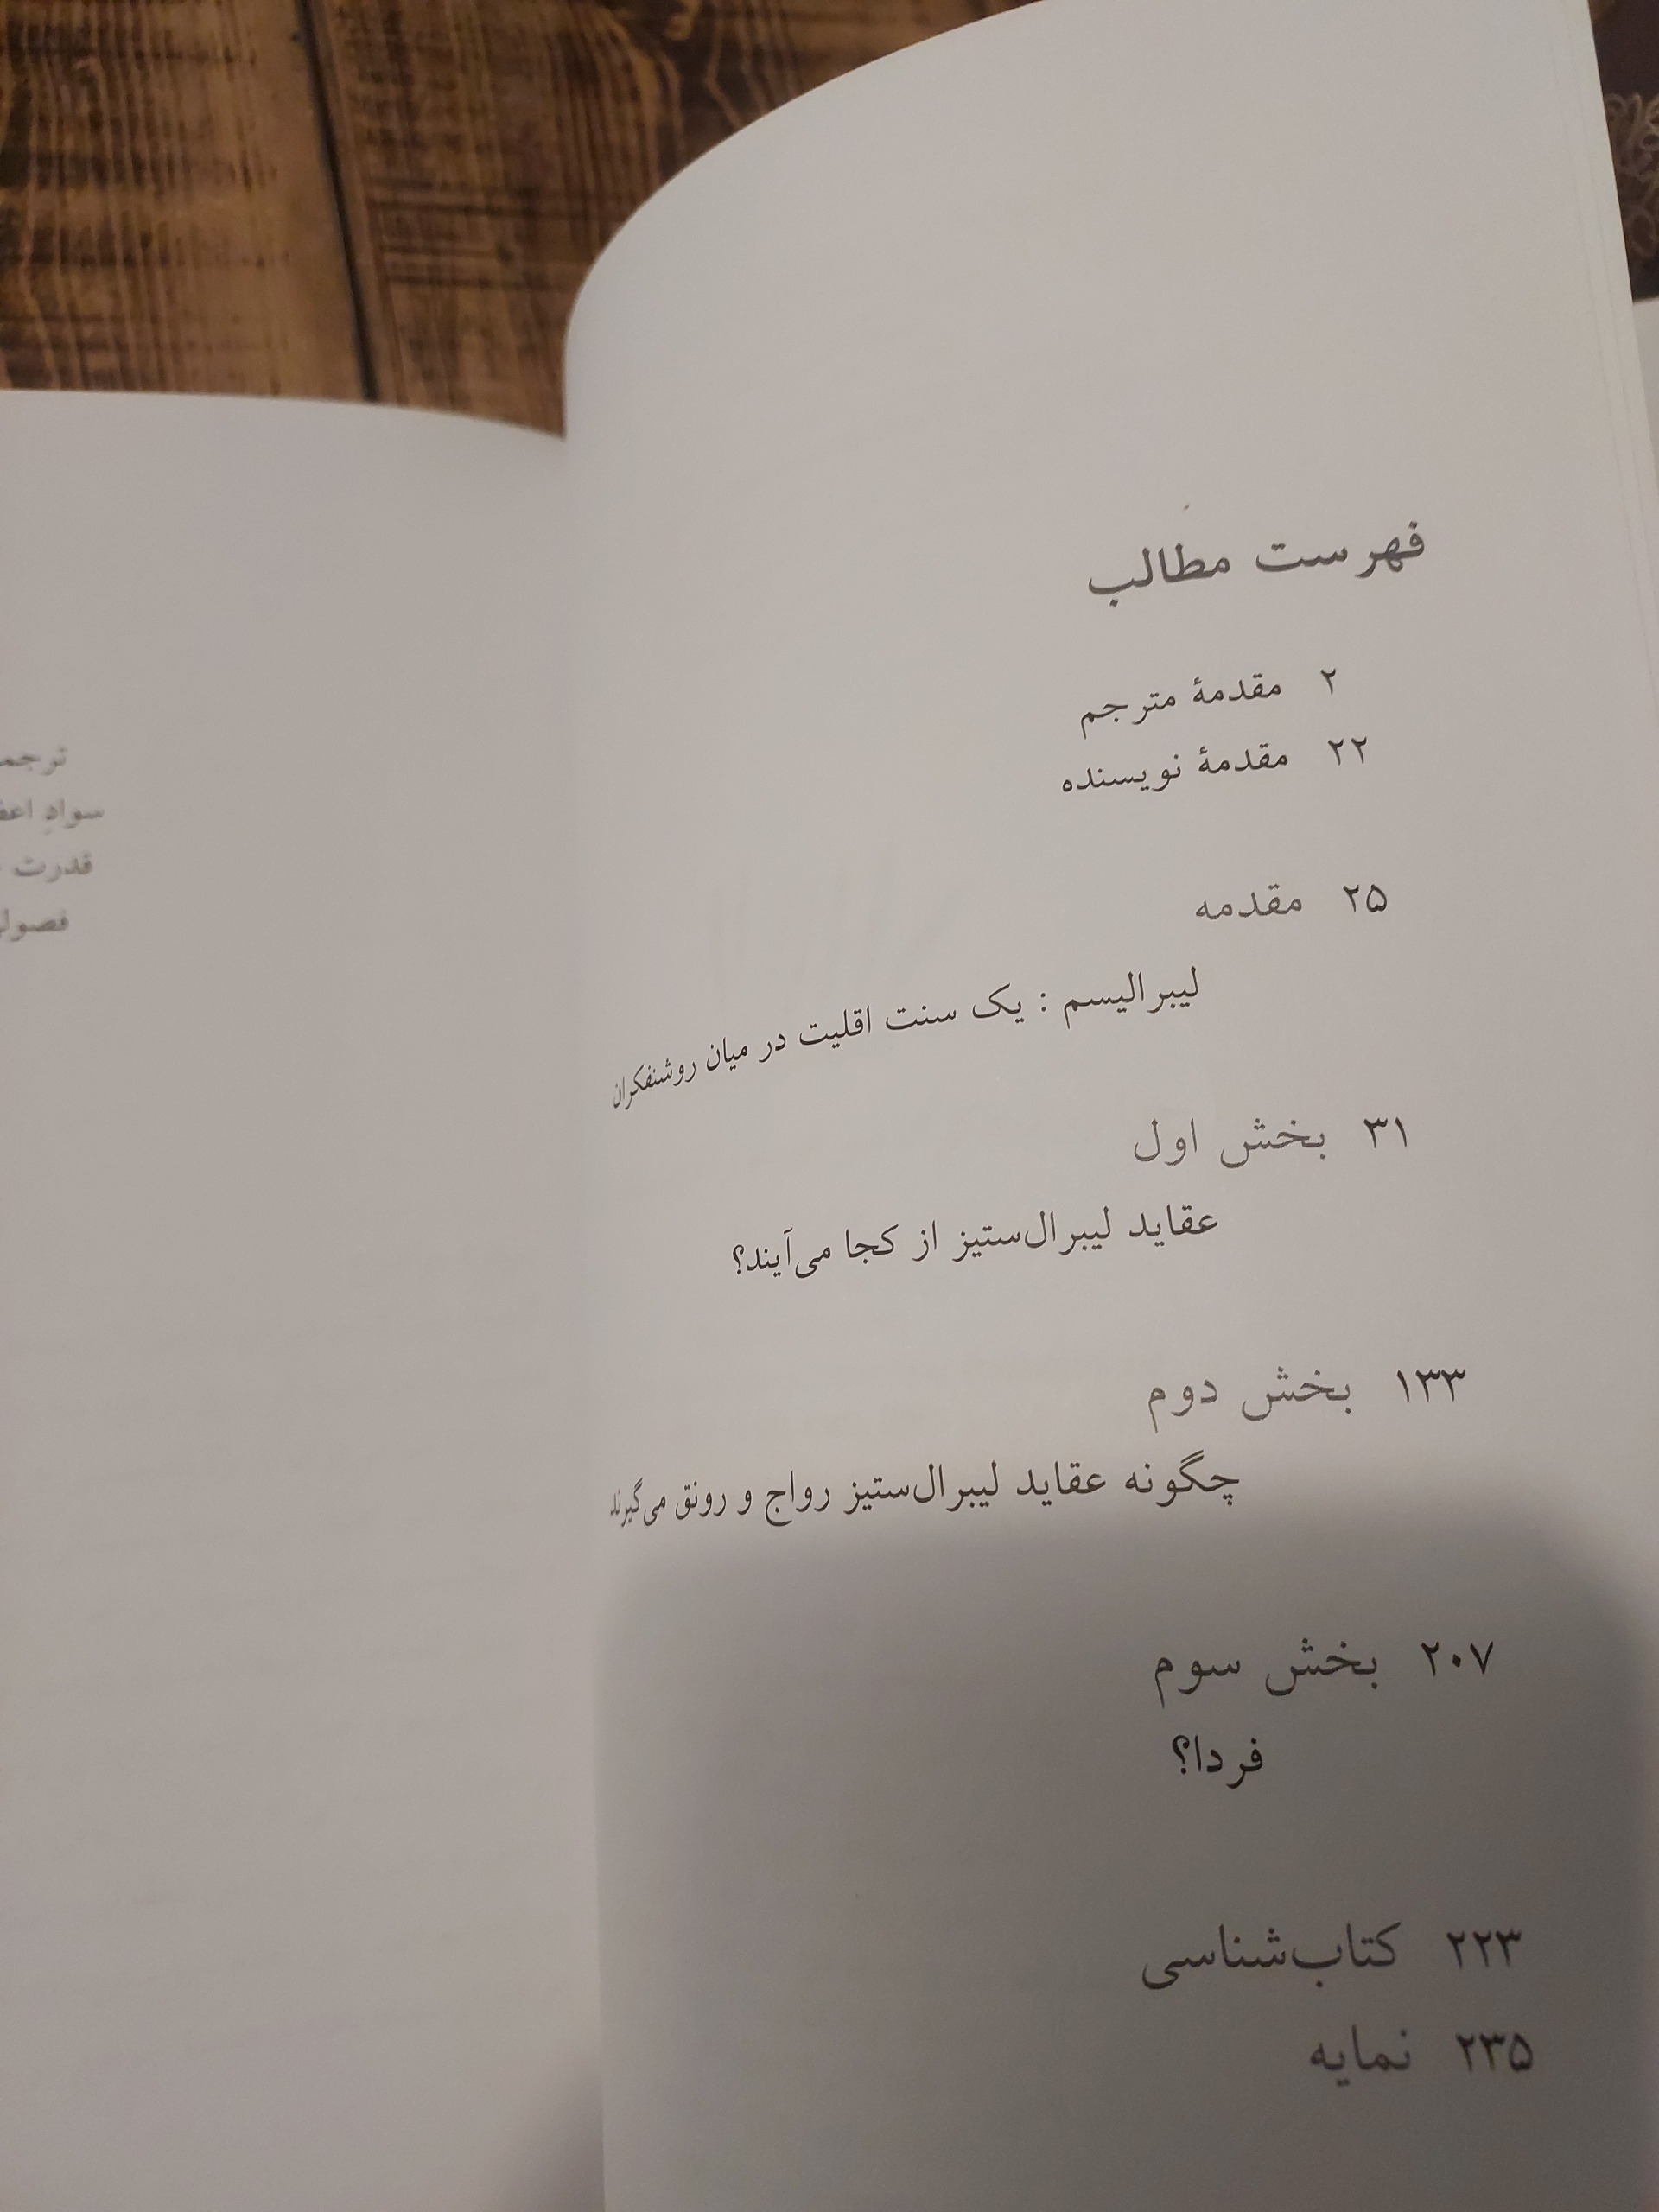 فهرست مطالب
۲ مقدمهٔ مترجم
۲۲ مقدمهٔ نویسنده
۲۵ مقدمه
لیبرالیسم : یک سنت اقلیت در میان روشنفکران
۳۱ بخش اول
عقاید لیبرال‌ستیز از کجا می‌آیند؟
۱۳۳ بخش دوم
چگونه عقاید لیبرال‌ستیز رواج و رونق می‌گیرند
۲۰۷ بخش سوم
فردا؟
۲۲۳ کتاب‌شناسی
۲۳۵ نمایه
سوادِ
قدرت